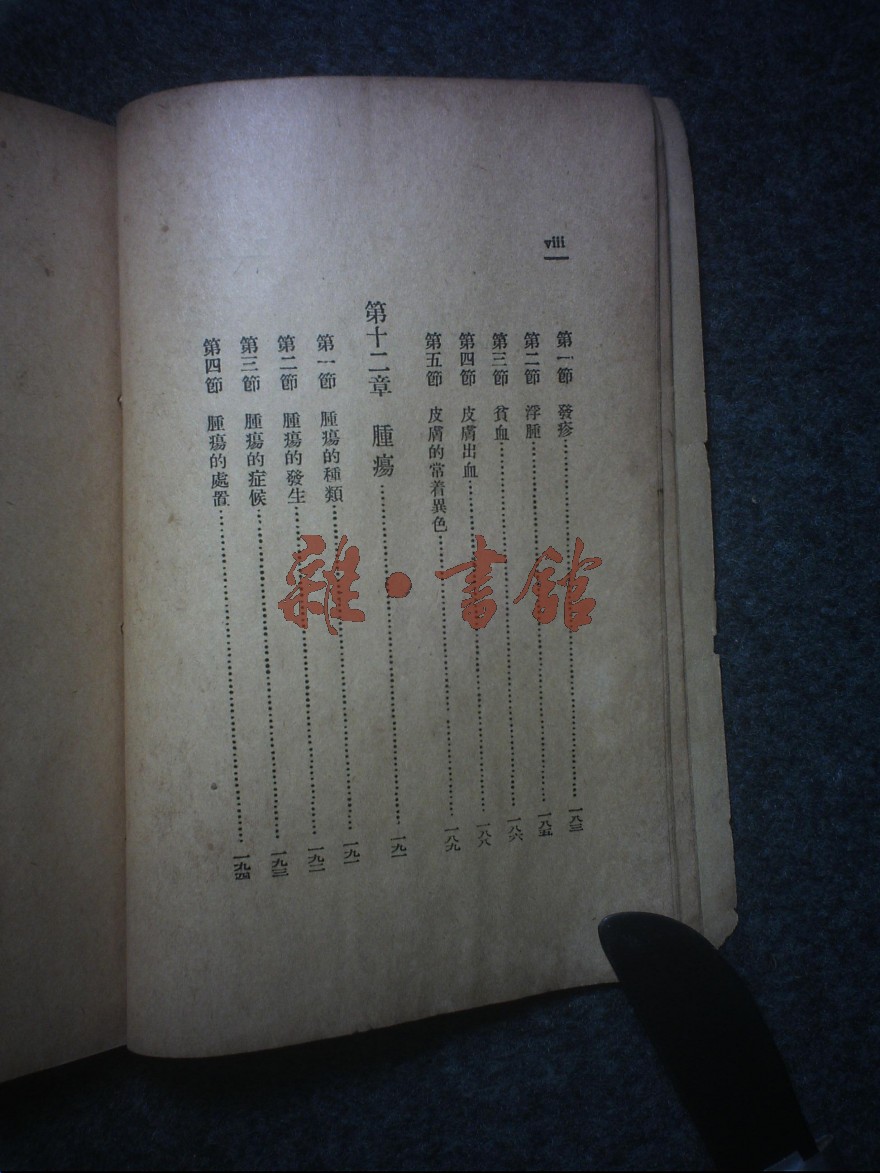 viii
第一節 發疹……一八三
第二節 浮腫……一八五
第三節 貧血……一八六
第四節 皮膚出血……一八八
第五節 皮膚的常着異色……一八九
第十二章 腫瘍……一九一
第一節 腫瘍的種類……一九一
第二節 腫瘍的發生……一九二
第三節 腫瘍的症候……一九三
第四節 腫瘍的處置……一九四
雜·書館